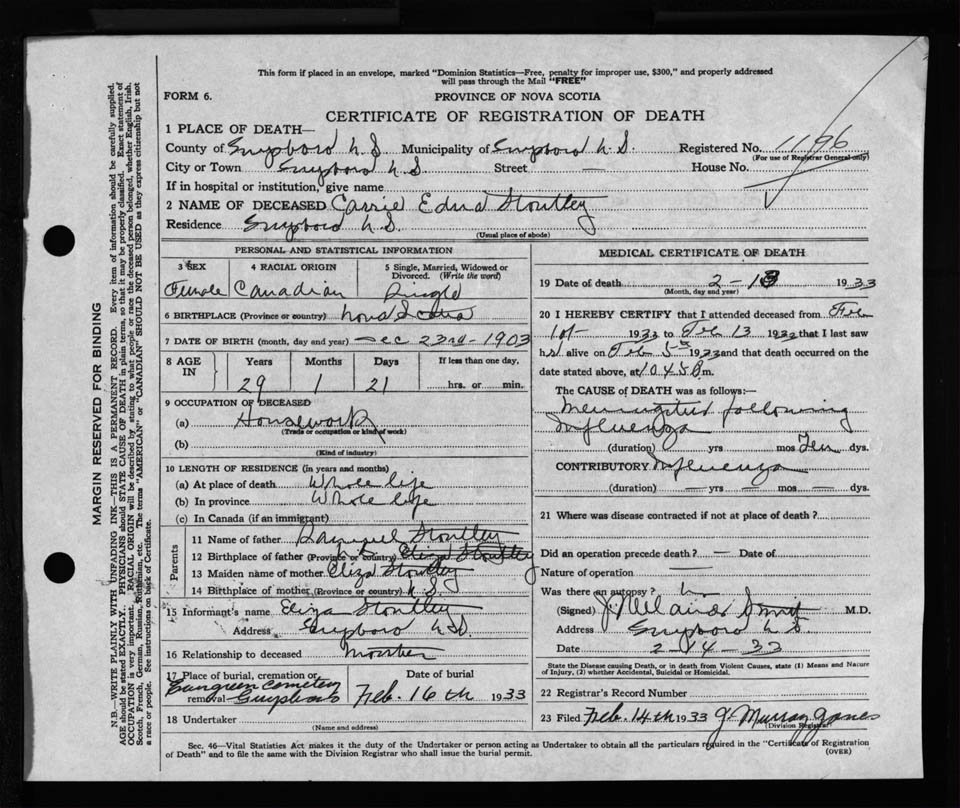 This form if placed in an envelope, marked "Dominion Statistics—Free, penalty for improper use, $300," and properly addressed
will pass through the Mail "FREE"
FORM 6.
PROVINCE OF NOVA SCOTIA
CERTIFICATE OF REGISTRATION OF DEATH
1 PLACE OF DEATH—
County of Guysboro N.S. Municipality of Guysboro N.S. Registered No. 1196
(For use of Registrar General only)
City or Town Guysboro N.S. Street — House No.
If in hospital or institution, give name
2 NAME OF DECEASED Carrie Edna Stoutley
Residence Guysboro N.S.
(Usual place of abode)
PERSONAL AND STATISTICAL INFORMATION
3 SEX 4 RACIAL ORIGIN 5 Single, Married, Widowed or Divorced. (Write the word)
Female Canadian Single
6 BIRTHPLACE (Province or country) Nova Scotia
7 DATE OF BIRTH (month, day and year) Dec 23rd - 1903
8 AGE IN Years Months Days If less than one day,
29 1 21 hrs. or min.
9 OCCUPATION OF DECEASED
(a) Housework
(Trade or occupation or kind of work)
(b)
(Kind of industry)
10 LENGTH OF RESIDENCE (in years and months)
(a) At place of death Whole life
(b) In province Whole life
(c) In Canada (if an immigrant)
Parents
11 Name of father Stoutley
12 Birthplace of father (Province or country) Eliza Stoutley
13 Maiden name of mother Eliza Stoutley
14 Birthplace of mother (Province or country) N.S.
15 Informant's name Eliza Stoutley
Address Guysboro N.S.
16 Relationship to deceased Mother
17 Place of burial, cremation or removal Date of burial
Evergreen Cemetery Guysboro Feb. 16th 1933
18 Undertaker
(Name and address)
MEDICAL CERTIFICATE OF DEATH
19 Date of death 2-13 1933
(Month, day and year)
20 I HEREBY CERTIFY that I attended deceased from Feb
1st 1933 to Feb 13 1933 that I last saw
her alive on Feb 5th 1933 and that death occurred on the
date stated above, at 10.45 P.m.
The CAUSE of DEATH was as follows:—
Meningitis following
Influenza
(duration) yrs mos Ten dys.
CONTRIBUTORY Influenza
(duration) — yrs — mos — dys.
21 Where was disease contracted if not at place of death?
Did an operation precede death? — Date of
Nature of operation —
Was there an autopsy?
(Signed) M.D.
Address Guysboro N.S.
Date 2-14-33
State the Disease causing Death, or in death from Violent Causes, state (1) Means and Nature
of Injury, (2) whether Accidental, Suicidal or Homicidal.
22 Registrar's Record Number
23 Filed Feb. 14th 1933 G. Murray Jones
(Division Registrar)
Sec. 46—Vital Statistics Act makes it the duty of the Undertaker or person acting as Undertaker to obtain all the particulars required in the "Certificate of Registration
of Death" and to file the same with the Division Registrar who shall issue the burial permit.
(OVER)
MARGIN RESERVED FOR BINDING
N.B.—WRITE PLAINLY WITH UNFADING INK—THIS IS A PERMANENT RECORD. Every item of information should be carefully supplied.
AGE should be stated EXACTLY. PHYSICIANS should STATE CAUSE OF DEATH in plain terms, so that it may be properly classified. Exact statement of
OCCUPATION is very important. RACIAL ORIGIN will be described by stating to what people or race the deceased person belonged, whether English, Irish,
Scotch, French, German, Russian, Ruthenian, etc. The terms "AMERICAN" or "CANADIAN" SHOULD NOT BE USED as they express citizenship but not
a race or people. See instructions on back of Certificate.